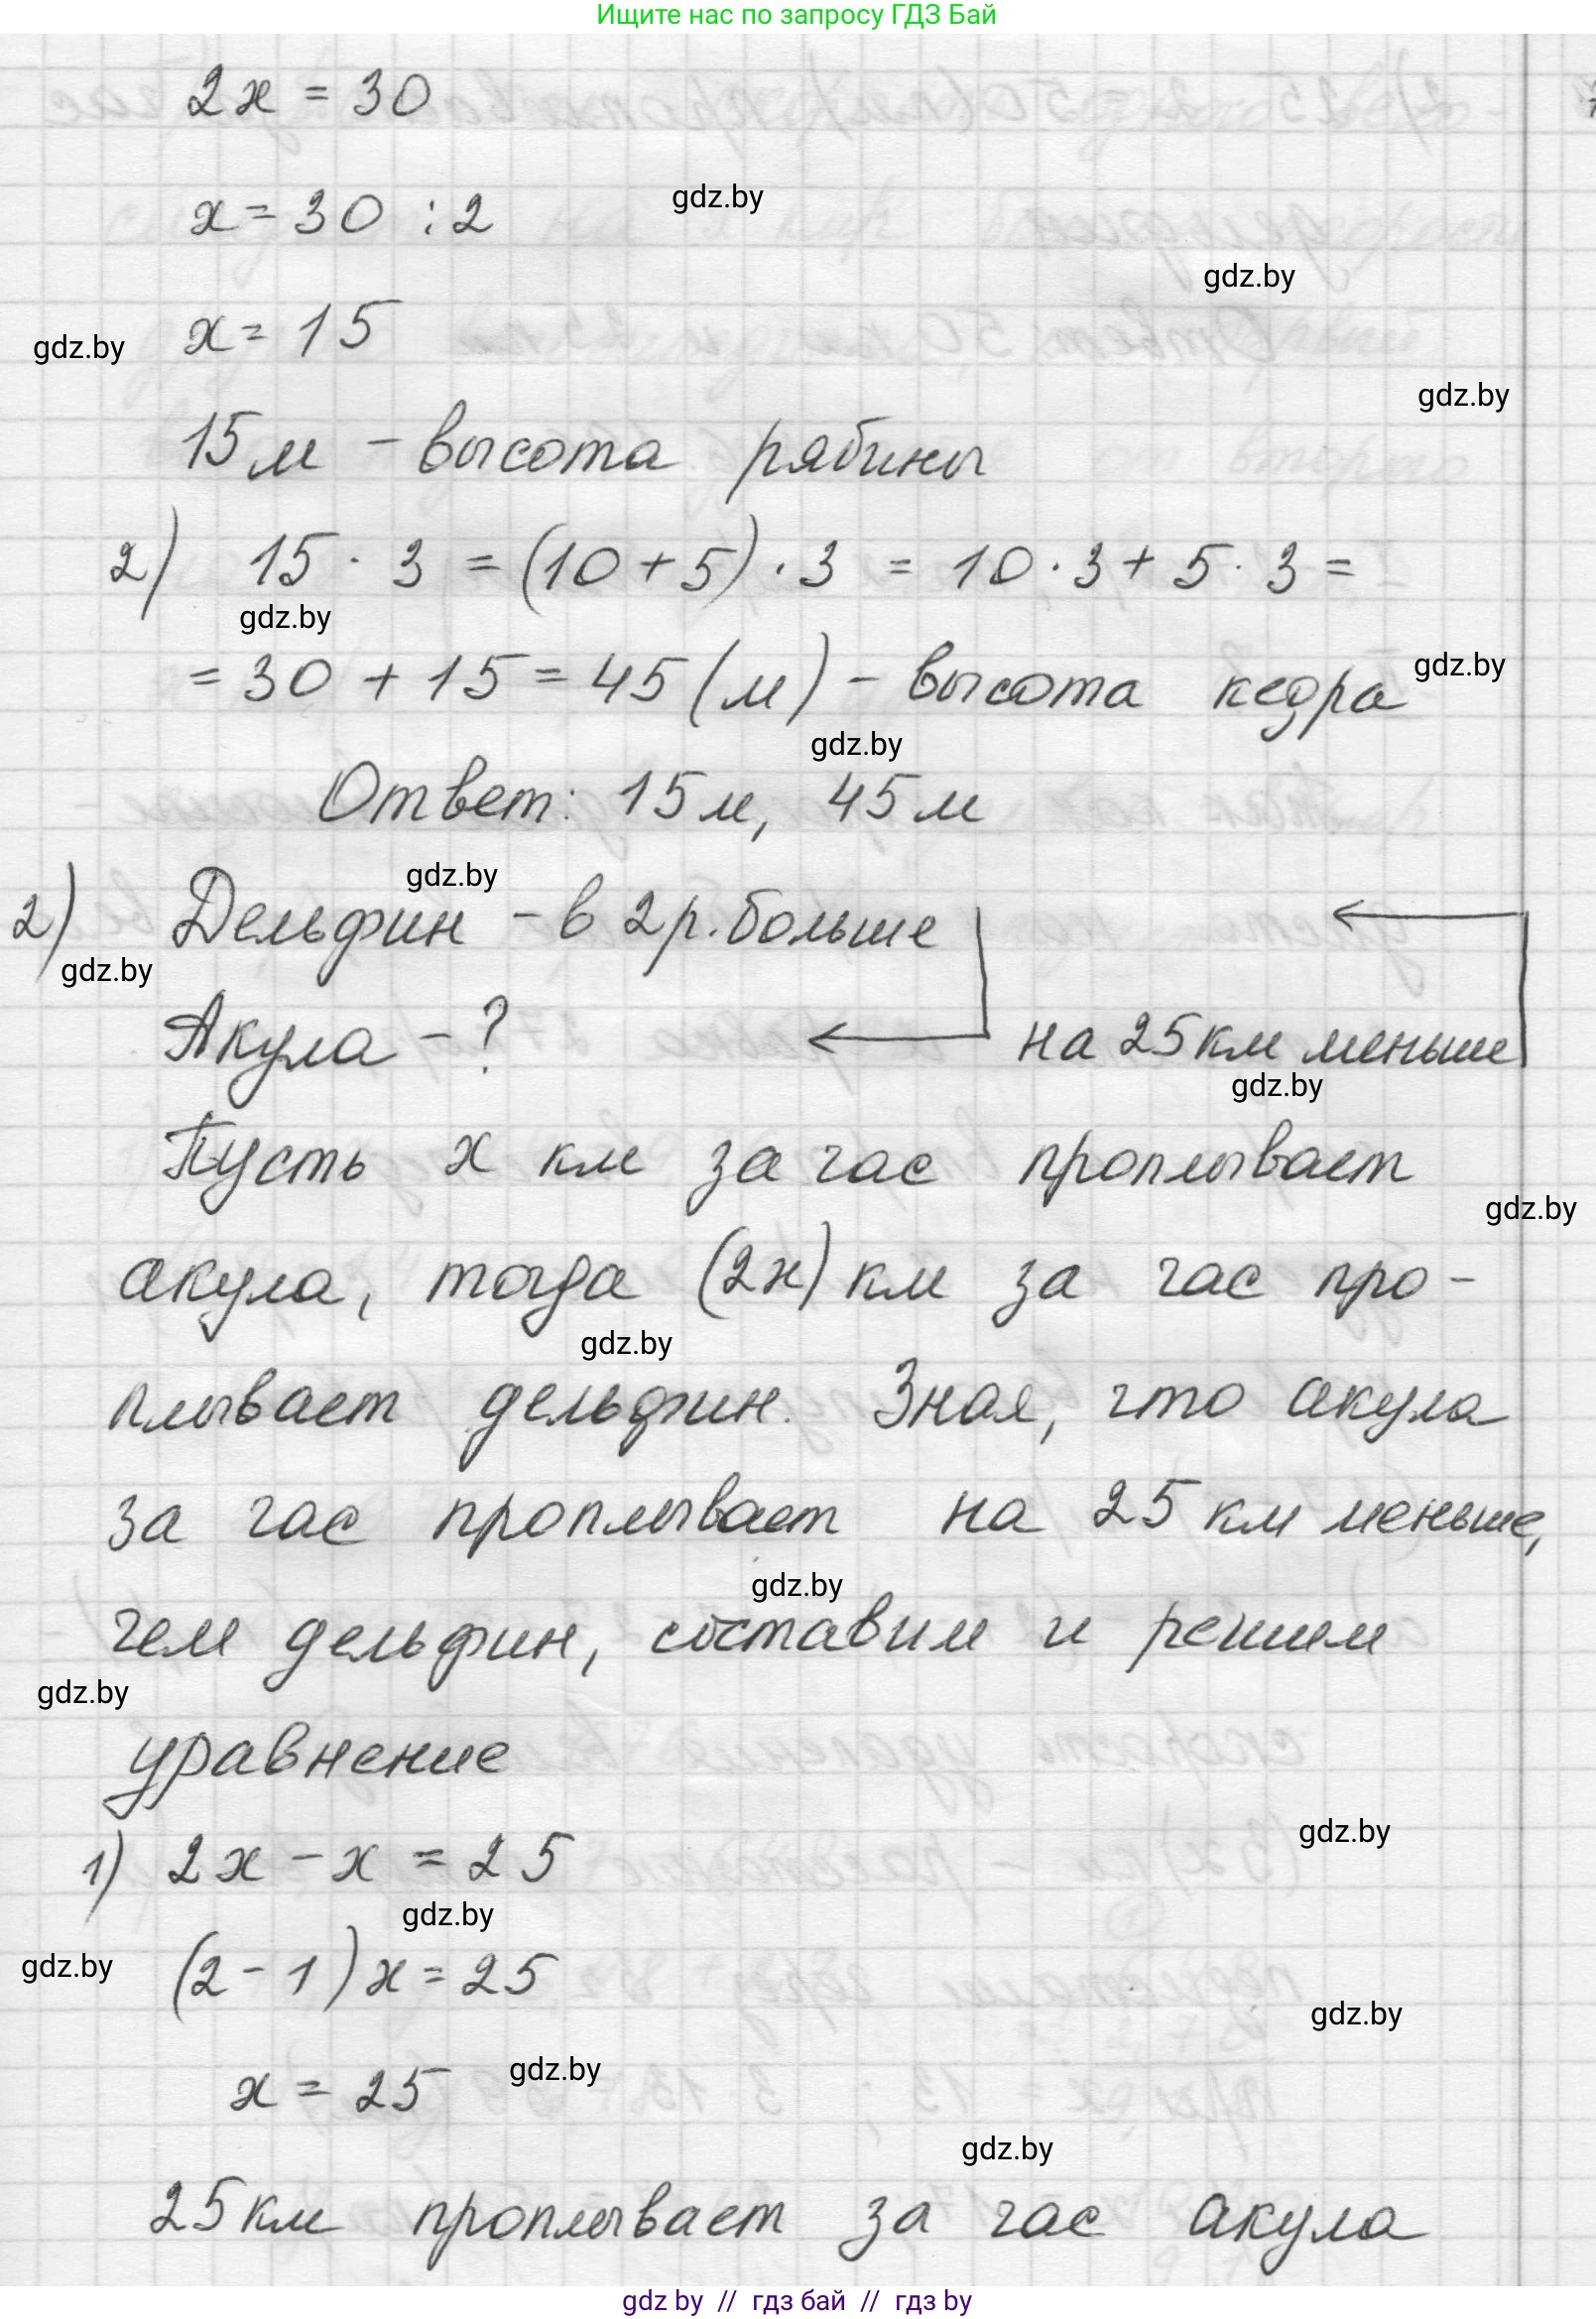 Ищите нас по запросу ГДЗ Бай
2x = 30
x = 30 : 2
gdz.by
gdz.by
x = 15
gdz.by
gdz.by
15 м - высота рябины
2) 15 · 3 = (10 + 5) · 3 = 10 · 3 + 5 · 3 =
gdz.by
= 30 + 15 = 45 (м) - высота кедра
gdz.by
gdz.by
Ответ: 15 м, 45 м
gdz.by
2) Дельфин - в 2 р. больше
gdz.by
Акула - ? на 25 км меньше
gdz.by
Пусть x км за час проплывает
gdz.by
акула, тогда (2x) км за час про-
gdz.by
плывает дельфин. Зная, что акула
за час проплывает на 25 км меньше,
gdz.by
чем дельфин, составим и решим
gdz.by
уравнение
gdz.by
1) 2x - x = 25
gdz.by
gdz.by
(2 - 1) x = 25
gdz.by
gdz.by
x = 25
gdz.by
25 км проплывает за час акула
gdz by // гдз бай // гдз by